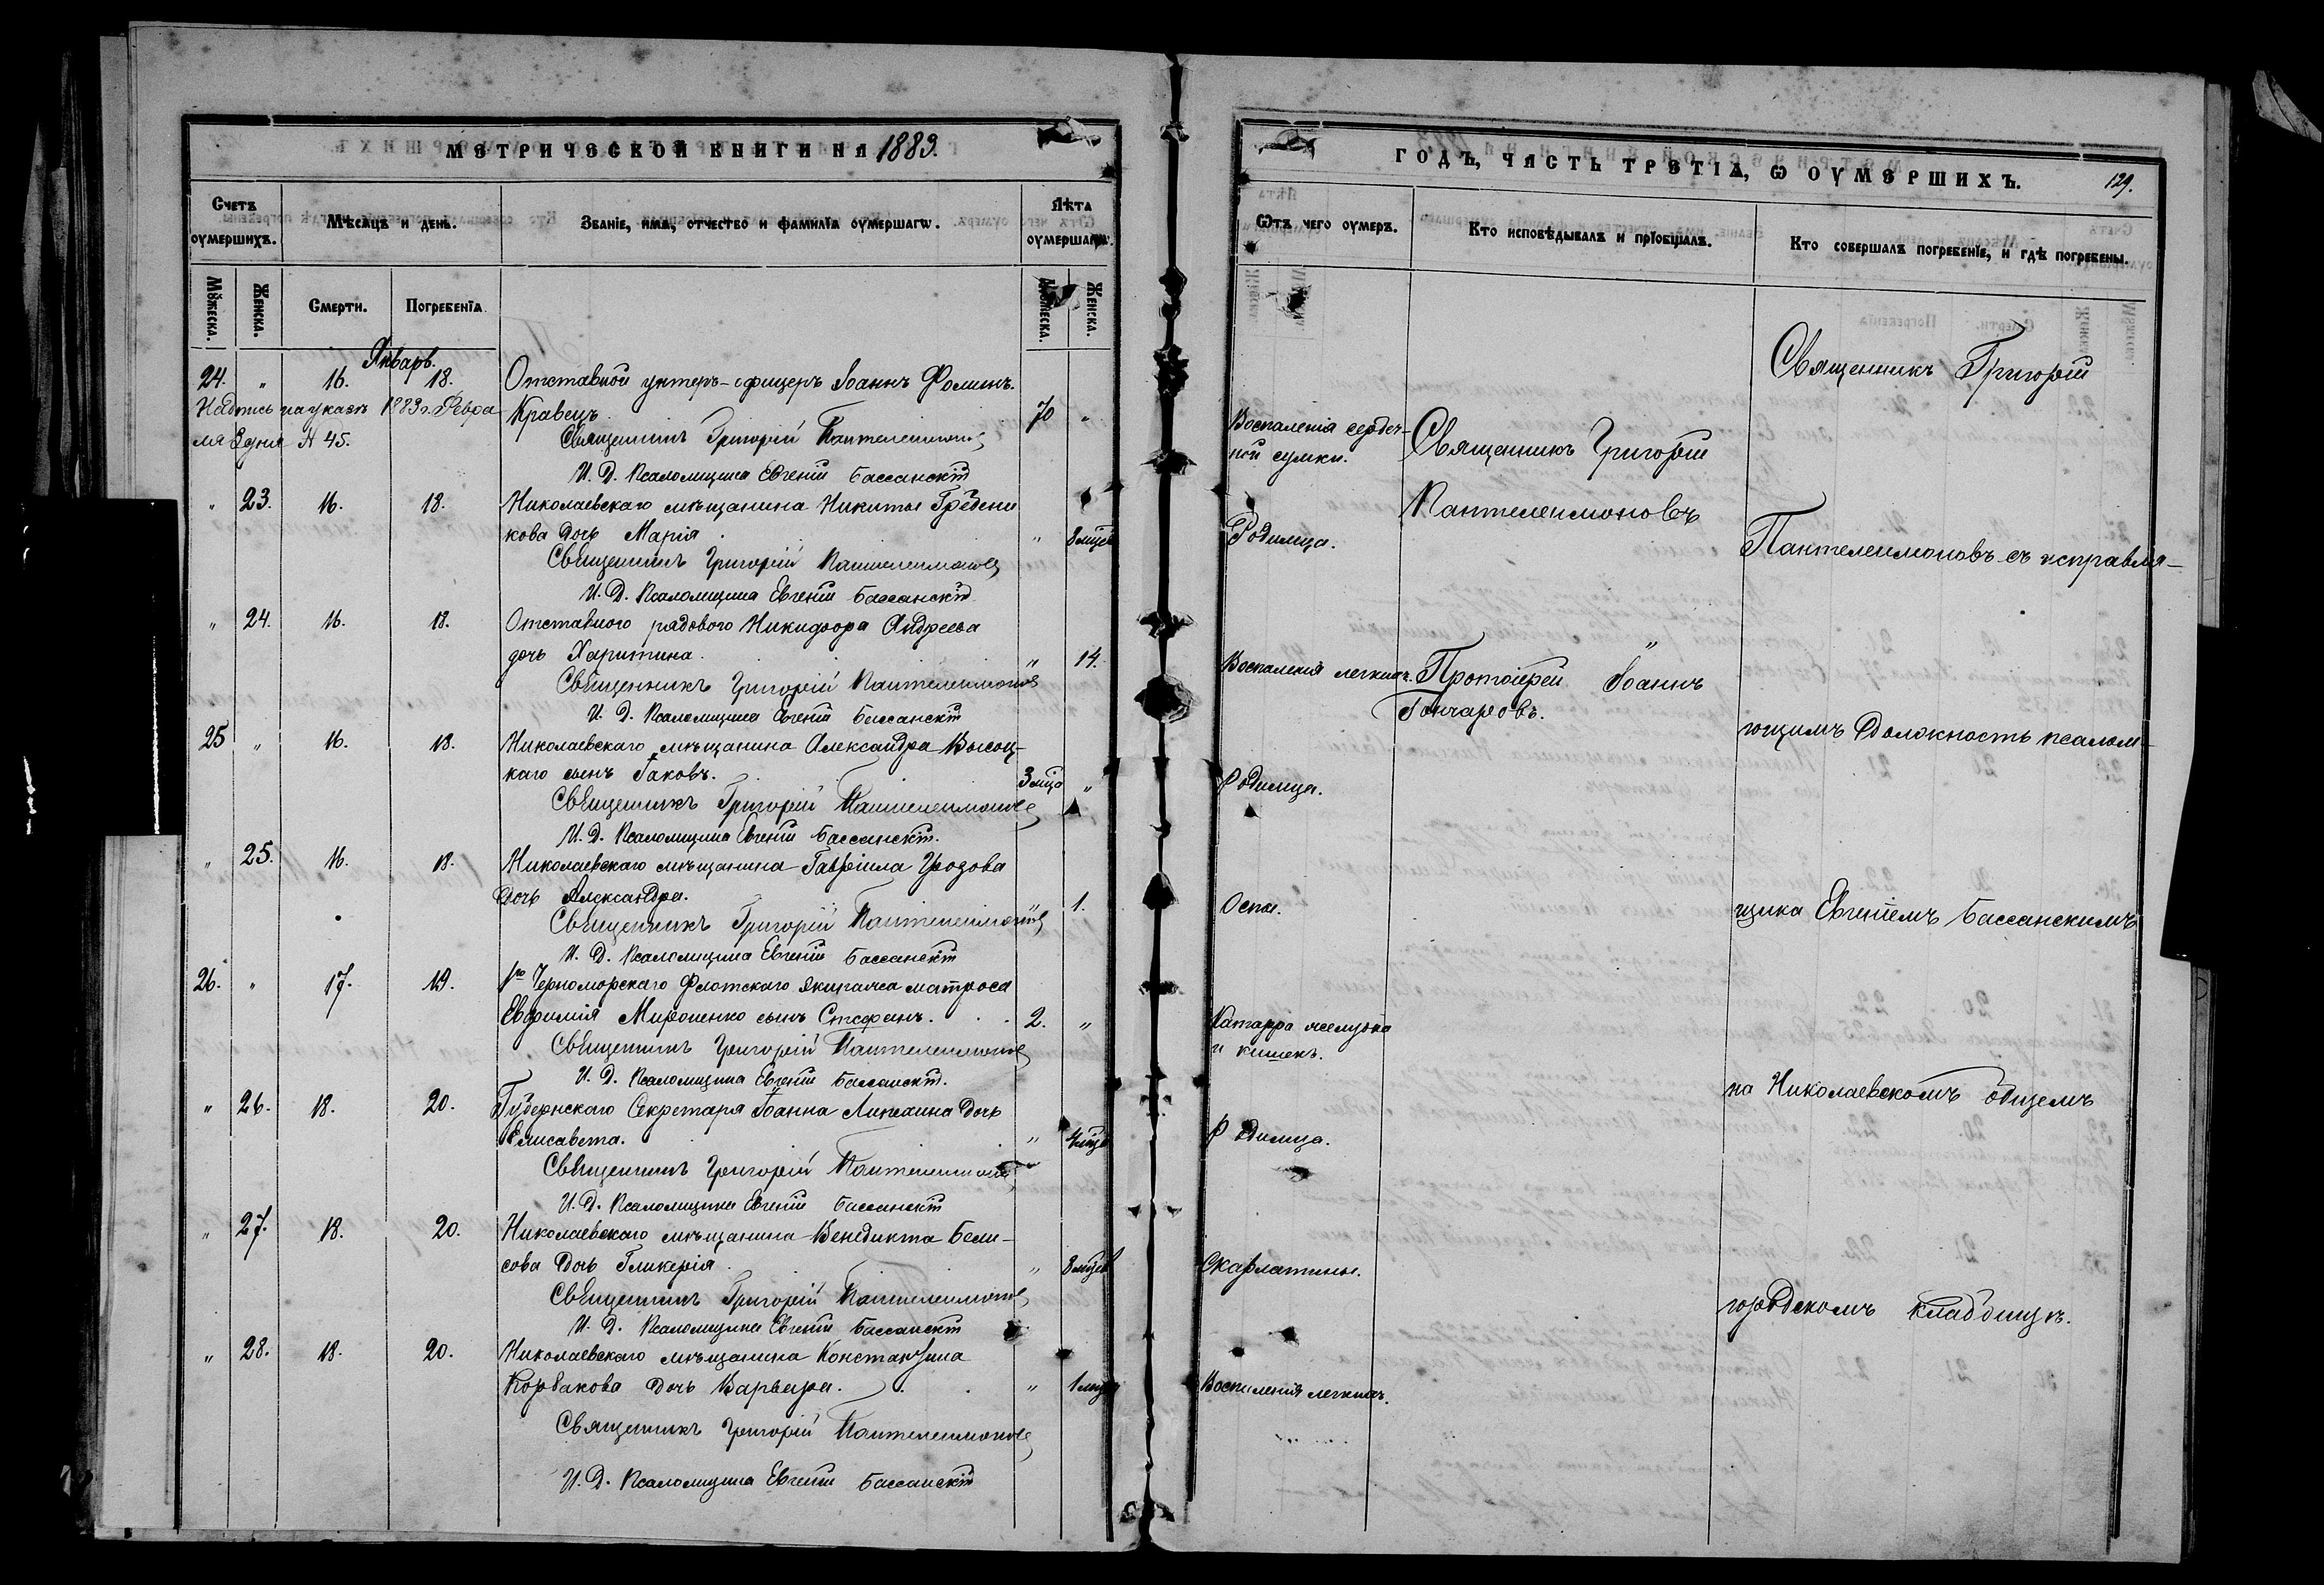 МЕТРИЧЕСКОЙ КНИГИ НА 1883.
Счетъ оумершихъ.
Мѣсяцъ и день.
Званіе, имя, отчество и фамилія оумершагѡ.
Лѣта оумершагѡ.
Мꙋжеска.
Женска.
Смерти.
Погребенїя
Мꙋжеска.
Женска.
Январь.
24. " 16. 18. Отставной унтеръ-офицеръ Іоаннъ Фоминъ.
Надпись по указу 1883 г. Февра
Кравецъ. 70 "
ля 8 дня № 45.
Священникъ Григорій Пантелеимоновъ
И. Д. Псаломщика Евгеній Бассанскій
" 23. 16. 18. Николаевскаго мѣщанина Никиты Гребени
кова дочь Марія. " 8 мцев
Священникъ Григорій Пантелеимоновъ
И. Д. Псаломщика Евгеній Бассанскій
" 24. 16. 18. Отставного рядового Никифора Андреева
дочь Харитина. " 14.
Священникъ Григорій Пантелеимоновъ
И. Д. Псаломщика Евгеній Бассанскій
25 " 16. 18. Николаевскаго мѣщанина Александра Высоц-
каго сынъ Іаковъ. 3 мца "
Священникъ Григорій Пантелеимоновъ
И. Д. Псаломщика Евгеній Бассанскій.
" 25. 16. 18. Николаевскаго мѣщанина Гавріила Грозова
дочь Александра. " 1.
Священникъ Григорій Пантелеимоновъ
И. Д. Псаломщика Евгеній Бассанскій
26. " 17. 19. 1го Черноморскаго Флотскаго экипажа матроса
Евфимія Мироненко сынъ Стефанъ. 2. "
Священникъ Григорій Пантелеимоновъ
И. Д. Псаломщика Евгеній Бассанскій.
" 26. 18. 20. Губернскаго Секретаря Іоанна дочь
Елисавета. " мцев
Священникъ Григорій Пантелеимоновъ
И. Д. Псаломщика Евгеній Бассанскій
" 27. 18. 20. Николаевскаго мѣщанина Венедикта Бели-
сова дочь Гликерія. " 8 мцев
Священникъ Григорій Пантелеимоновъ
И. Д. Псаломщика Евгеній Бассанскій
" 28. 18. 20. Николаевскаго мѣщанина Константина
Корбакова дочь Варвара. " 1 мца
Священникъ Григорій Пантелеимоновъ
И. Д. Псаломщика Евгеній Бассанскій
ГОДЪ, ЧАСТЬ ТРЕТІЯ, Ѡ ОУМЕРШИХЪ. 129.
Ѿтъ чего оумеръ.
Кто исповѣдывалъ и прїобщалъ.
Кто совершалъ погребенїе, и гдѣ погребены.
Воспаленія сердеч-
ной сумки.
Родимца.
Воспаленія легкихъ.
Родимца.
Оспы.
Катарра желудка
и кишекъ.
Родимца.
Скарлатины.
Воспаленія легкихъ.
Священникъ Григорій
Пантелеимоновъ
"
Протоіерей Іоаннъ
Гончаровъ.
Священникъ Григорій
Пантелеимоновъ съ исправля-
ющимъ должность псалом-
щика Евгеніемъ Бассанскимъ
на Николаевскомъ общемъ
городскомъ кладбищѣ.